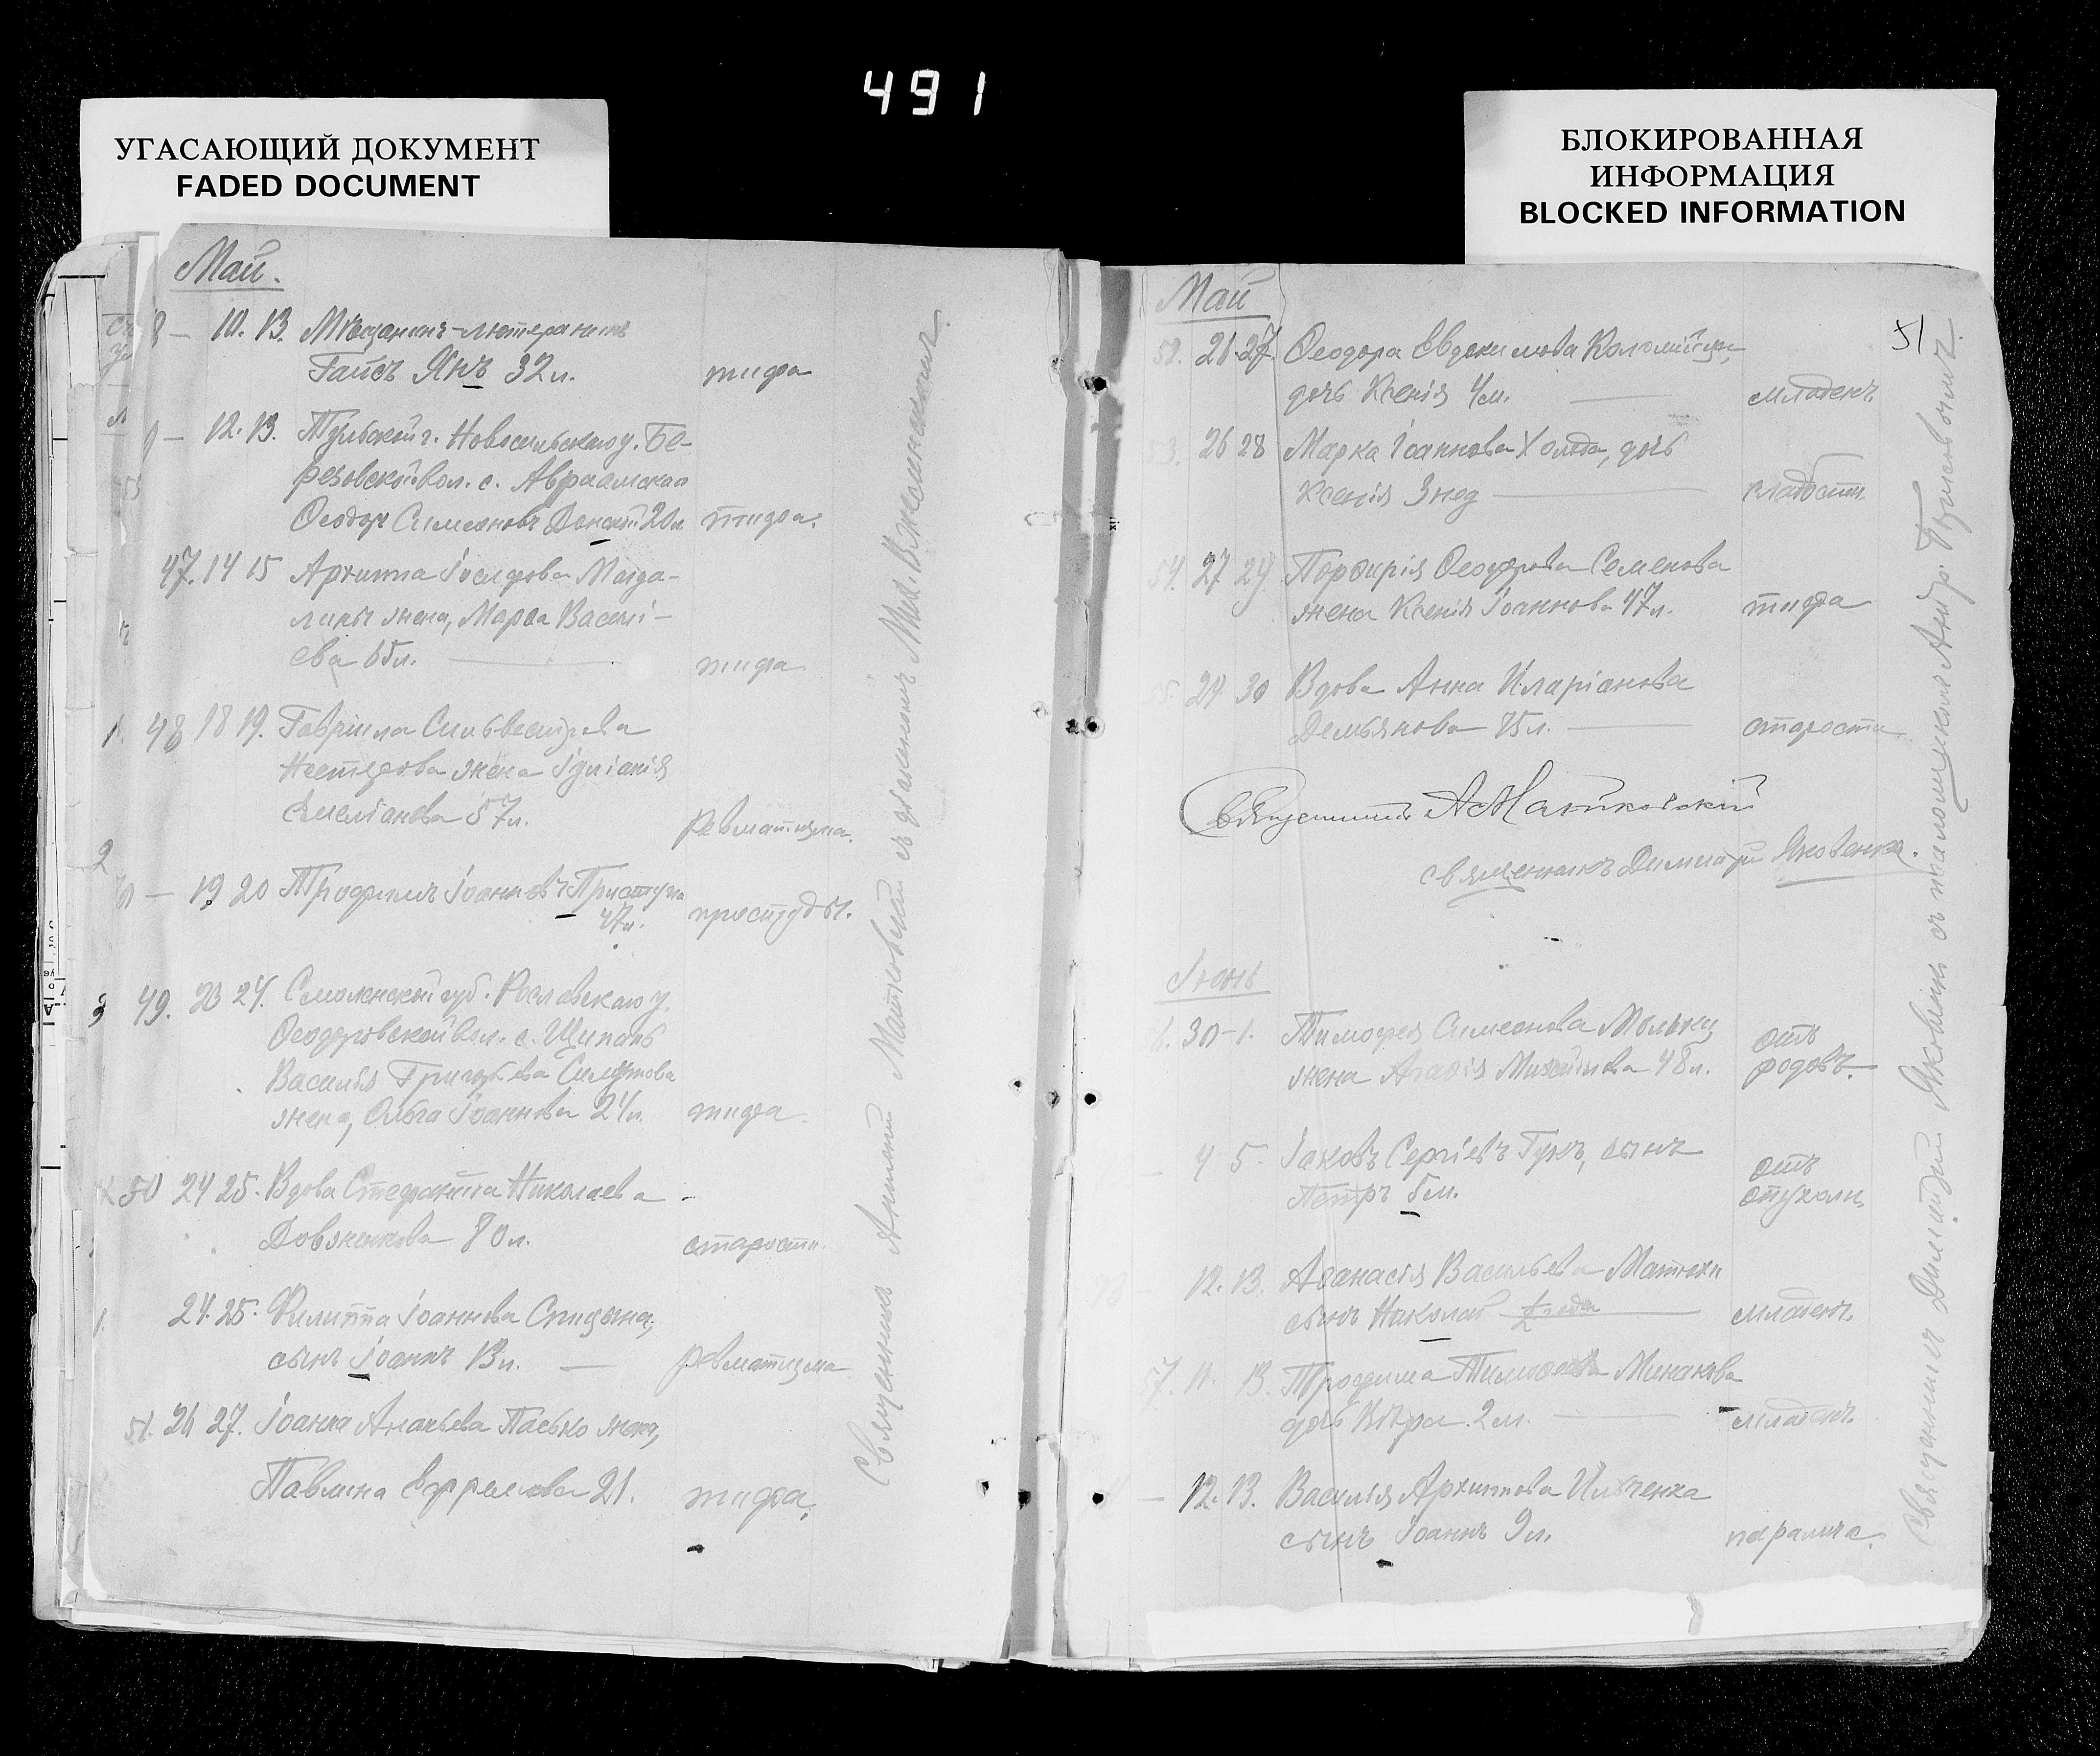 491
УГАСАЮЩИЙ ДОКУМЕНТ
FADED DOCUMENT
БЛОКИРОВАННАЯ
ИНФОРМАЦИЯ
BLOCKED INFORMATION
Май.
8 — 10. 13. Мѣщанинъ-лютеранинъ
Гансъ Янъ 32 л. тифа
9 — 12. 13. Тульской г. Новосильскаго у. Бе-
резовской вол. с.
Ѳеодоръ Симеоновъ Донской 20 л. тифа.
47. 14 15 Архиппа Іосифова
жена, Марѳа Василі-
ева 65 л. тифа
48 18 19. Гавриила Сильвестрова
Нестерова жена Іуліанія
Емеліанова 57 л. ревматизма.
10 — 19 20 Трофимъ Іоанновъ Приступа
47 л. простуды.
49. 23 24. Смоленской губ. Рославскаго у.
Ѳеодоровской вол. с.
Василія Григорьева
жена, Ольга Іоаннова 24 л. тифа
50 24 25. Вдова Николаева
Довженкова 80 л. старости.
24. 25. Филиппа Іоаннова
сынъ Іоаннъ 13 л. — ревматизма
51. 26 27. Іоанна Ананьева Пасько жена,
Павлина Ефремова 21. тифа.
Священникъ Антоній Матковскій съ діакономъ Мих.
51
Май
52. 26 27. Ѳеодора Евдокимова Коломійца,
дочь Ксенія 4 м. — младенч.
53. 26 28 Марка Іоаннова Холода, дочь
Ксенія 3 нед — слабости.
54. 27 29. Порфирія Ѳеодорова Семенова
жена Ксенія Іоаннова 47 л. тифа
55. 29 30 Вдова Анна Иларіанова
Демьянова 75 л. — старости
Священникъ А Матковскій
священникъ Димитрій Яковенко.
Іюнь
30 — 1. Тимофея Симеонова
жена Агафія Михайлова 48 л.
отъ
родовъ.
— 4 5. Іаковъ Сергіевъ Гукъ, сынъ
Петръ 5 м.
отъ
опухоли.
12. 13. Аѳанасія Васильева Матюхи
сынъ Николай — младенч.
57. 11. 13. Трофима Тимоѳеева Минакова
дочь Вѣра 2 м. — младенч.
— 12. 13. Василія Архиппова Ильченка
сынъ Іоаннъ 9 л. паралича.
Священникъ Димитрій Яковенко съ псаломщикомъ Андр.